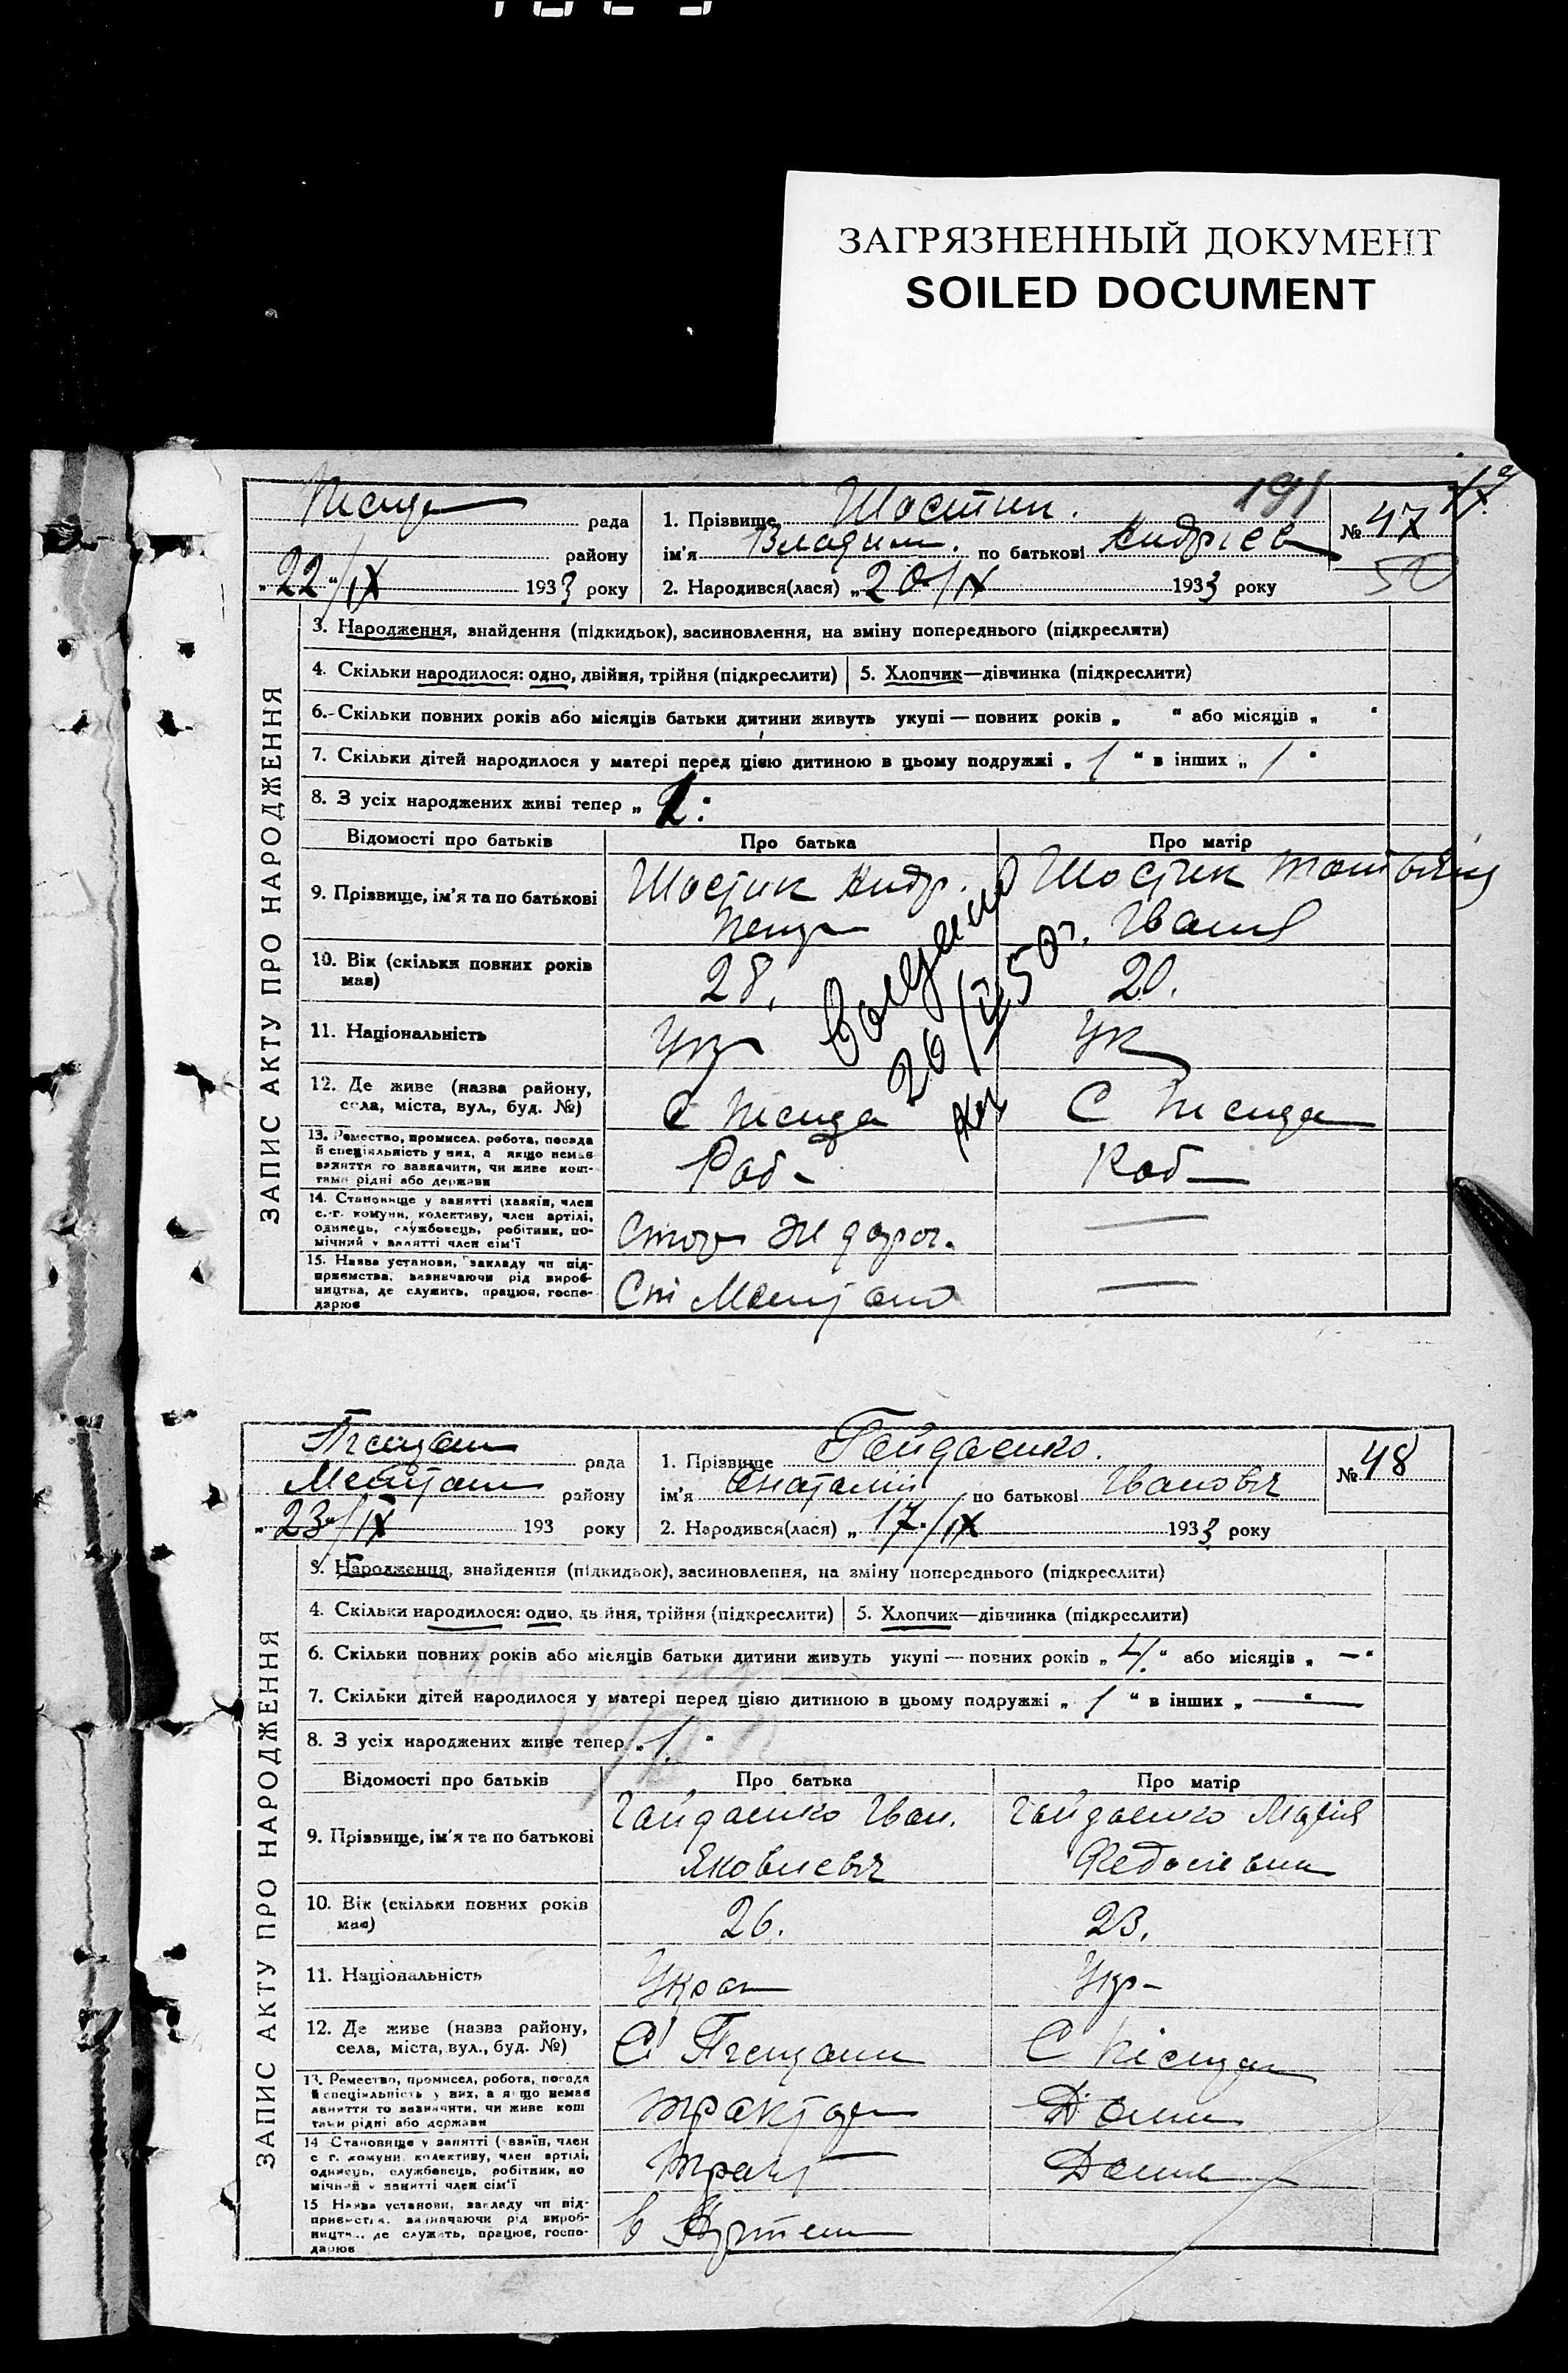 ЗАГРЯЗНЕННЫЙ ДОКУМЕНТ
SOILED DOCUMENT
рада
району
22/IX 1933 року
1. Прізвище Шостик. 191
ім'я Владим. по батькові Андріев
2. Народився(лася) „20/IX 1933 року
№ 47
50
ЗАПИС АКТУ ПРО НАРОДЖЕННЯ
3. Народження, знайдення (підкидьок), засиновлення, на зміну попереднього (підкреслити)
4. Скільки народилося: одно, двійня, трійня (підкреслити) 5. Хлопчик—дівчинка (підкреслити)
6. Скільки повних років або місяців батьки дитини живуть укупі — повних років „ “ або місяців „ “
7. Скільки дітей народилося у матері перед цією дитиною в цьому подружжі „ 1 “ в інших „ 1 “
8. З усіх народжених живі тепер „
Відомості про батьків Про батька Про матір
9. Прізвище, ім'я та по батькові
Шостик Андр. Шостик
Іван
10. Вік (скільки повних років має) 28. 20.
11. Національність Укр Ук
12. Де живе (назва району, села, міста, вул., буд. №)
13. Ремество, промисел, робота, посада й спеціяльність у них, а якщо немає заняття то зазначити, чи живе коштами рідні або держави Роб- Роб-
14. Становище у занятті (хазяїн, член с.-г. комуни, колективу, член артілі, одинець, службовець, робітник, помічний у занятті член сім'ї
Стор Ж дорог.
15. Назва установи, закладу чи підприємства, зазначаючи рід виробництва, де служить, працює, господарює
рада
району
23/IX 193 року
1. Прізвище Гайдаенко.
ім'я Анатолій по батькові Іванович
2. Народився(лася) „17/IX 1933 року
№ 48
ЗАПИС АКТУ ПРО НАРОДЖЕННЯ
3. Народження, знайдення (підкидьок), засиновлення, на зміну попереднього (підкреслити)
4. Скільки народилося: одно, двійня, трійня (підкреслити) 5. Хлопчик—дівчинка (підкреслити)
6. Скільки повних років або місяців батьки дитини живуть укупі — повних років „ 4. “ або місяців „ — “
7. Скільки дітей народилося у матері перед цією дитиною в цьому подружжі „ 1 “ в інших „ — “
8. З усіх народжених живе тепер „ 1. “
Відомості про батьків Про батька Про матір
9. Прізвище, ім'я та по батькові
Гайдаенко Іван. Гайдаенко Марія
Яковлевич Федосіевна
10. Вік (скільки повних років має) 26. 23.
11. Національність Укра Укр-
12. Де живе (назва району, села, міста, вул., буд. №)
13. Ремество, промисел, робота, посада й спеціяльність у них, а якщо немає заняття то зазначити, чи живе коштами рідні або держави
Трактор Дом
14. Становище у занятті (хазяїн, член с.-г. комуни, колективу, член артілі, одинець, службовець, робітник, помічний у занятті член сім'ї
Тракт Дом
15. Назва установи, закладу чи підприємства, зазначаючи рід виробництва, де служить, працює, господарює
в Артели